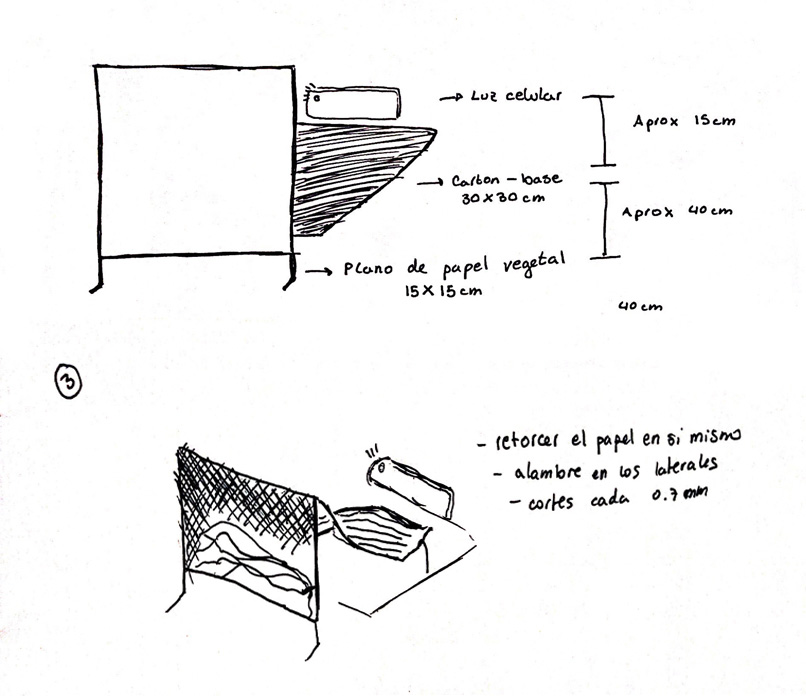 Luz celular
Aprox 15cm
Carton - base
30x30 cm
Aprox 40cm
Plano de papel vegetal
15x15cm
40cm
3
- retorcer el papel en si mismo
- alambre en los laterales
- cortes cada 0.7mm